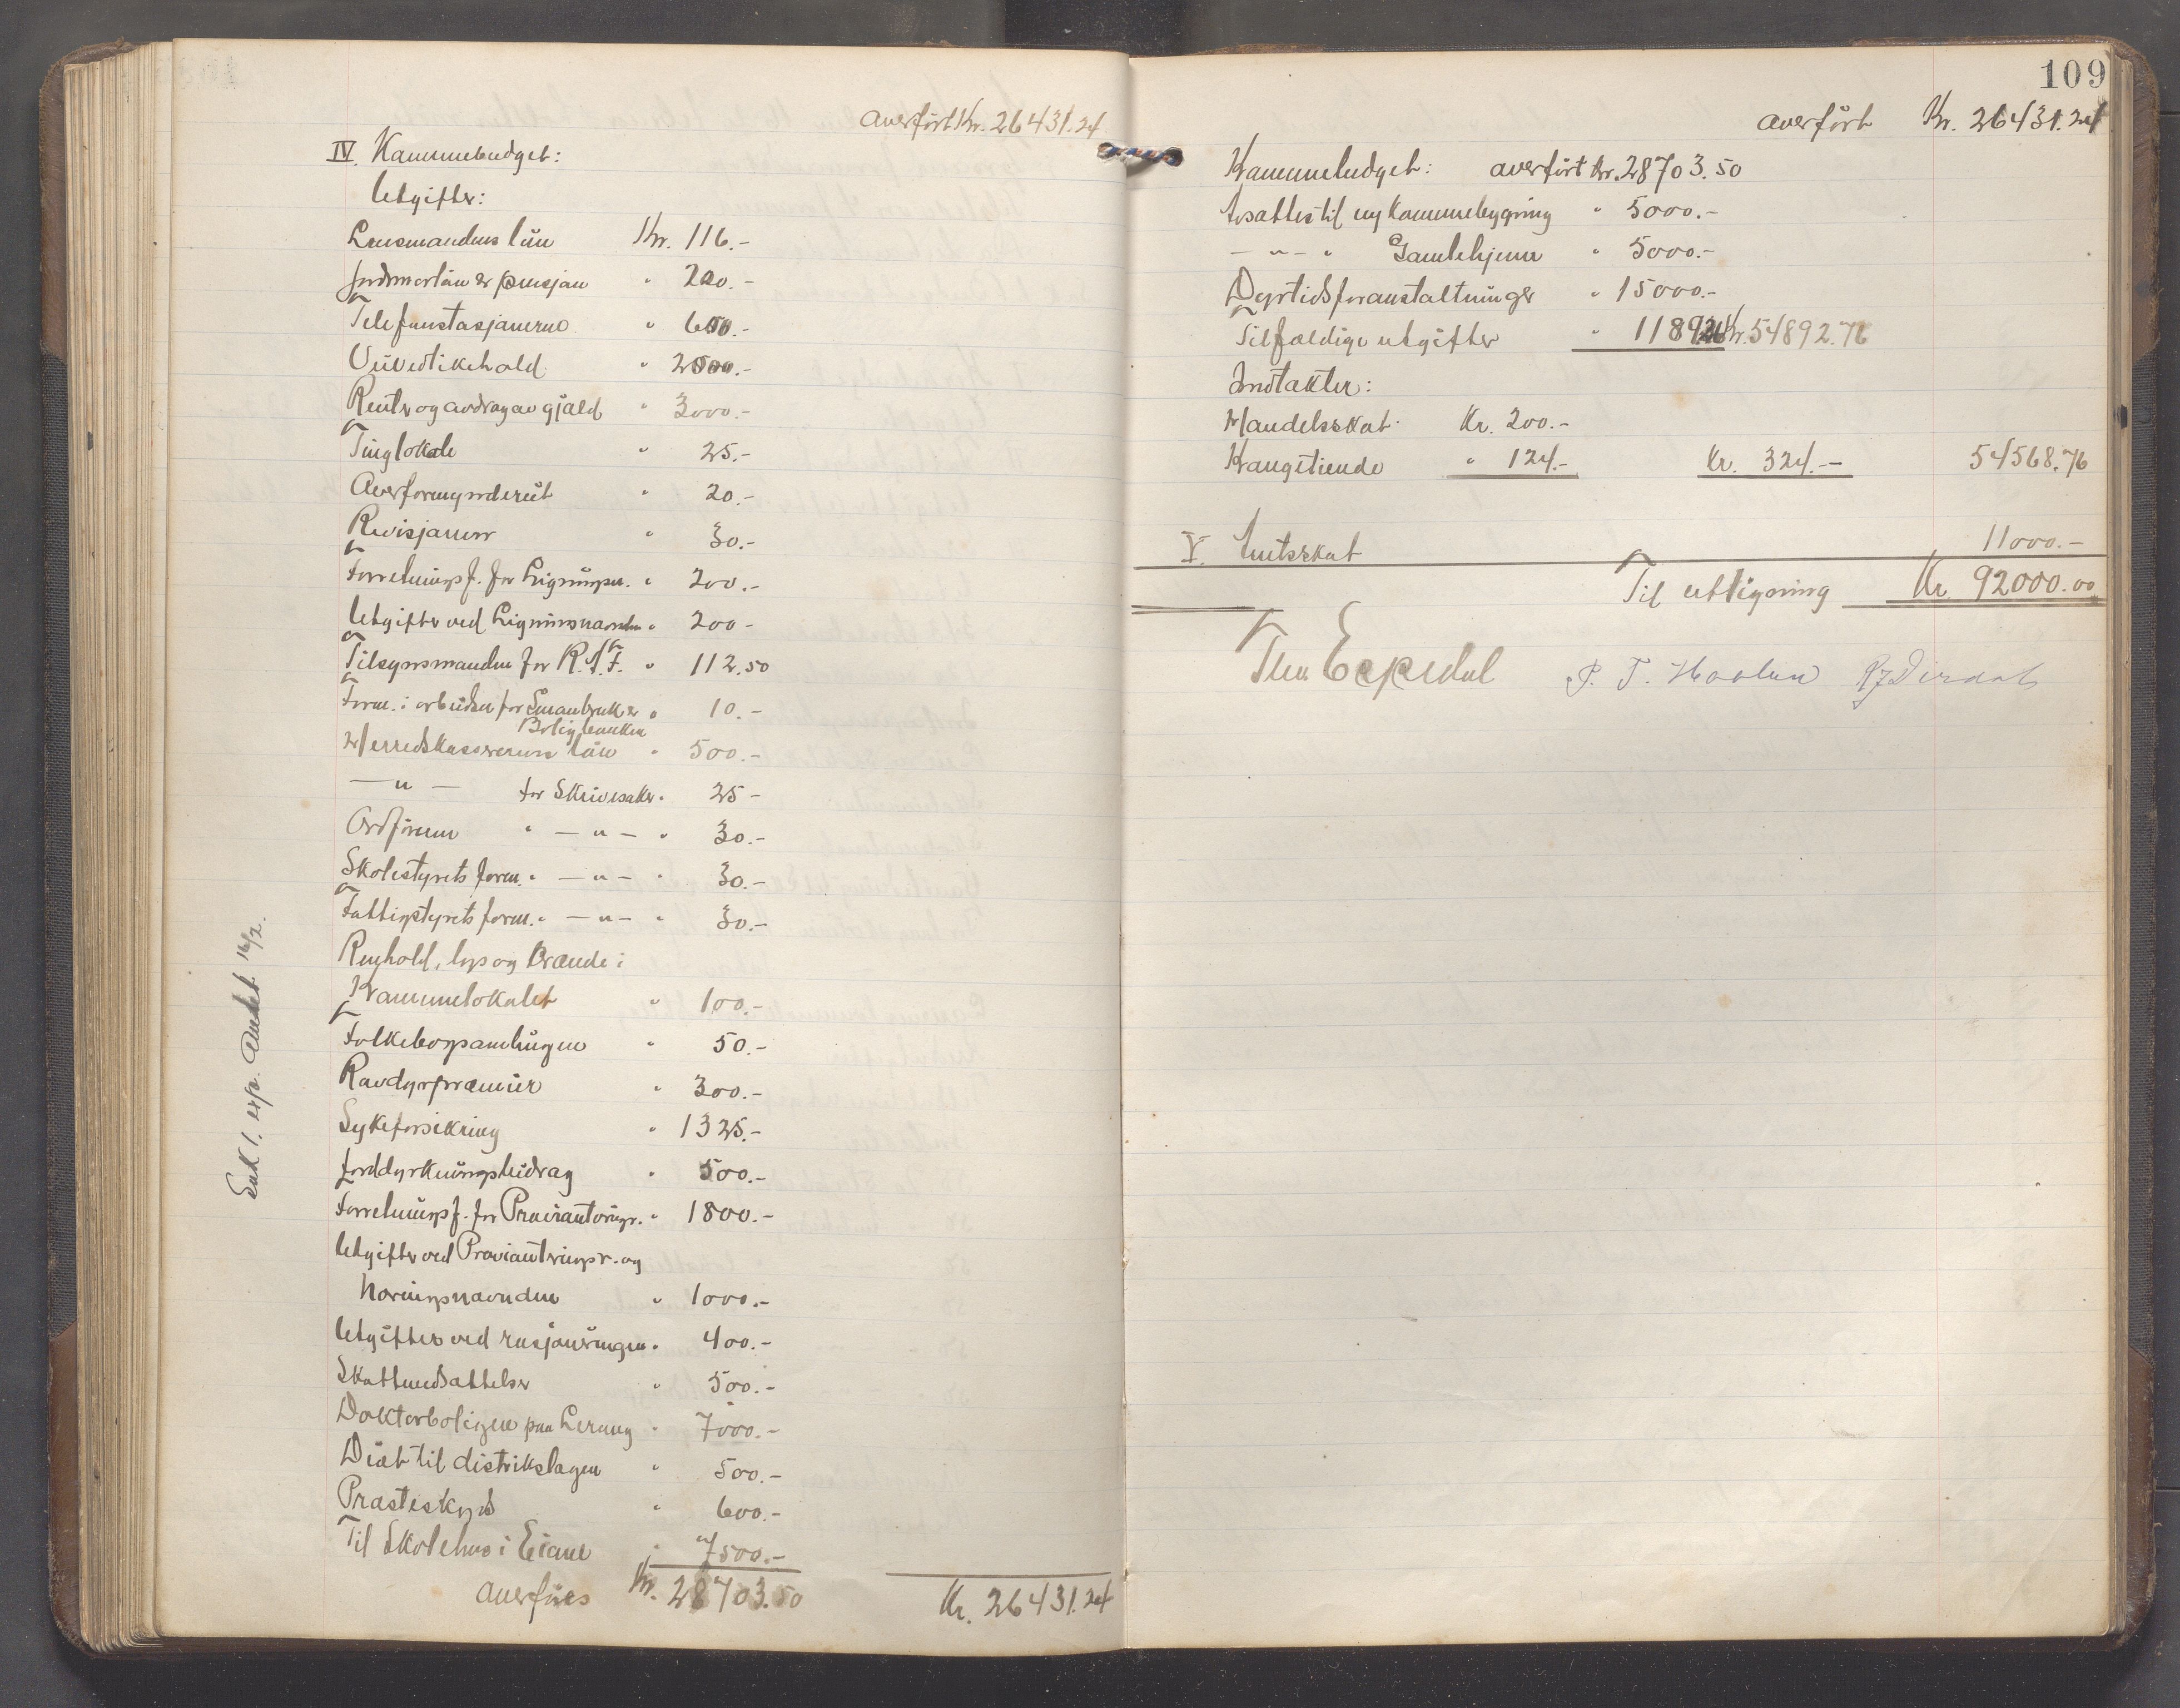 overført Kr. 26431.24
IV. Kommunebudget:
Utgifter:
Lensmandens løn Kr. 116.-
Jordmorløn & pensjon " 200.-
Telefonstasjonerne " 650.-
Veivedlikehold " 2500.-
Renter og avdrag av gjæld " 3000.-
Tinglokale " 25.-
Overformynderiet " 20.-
Revisjonen " 30.-
Forretningsf. for Ligningsn. " 200.-
Utgifter ved Ligningsnævnden " 200.-
Tilsynsmanden for R.T.F. " 112.50
Form. i arbeiden for Småbruk & " 10.-
Boligbanken
Herredskassererens løn " 500.-
— " — for Skrivesaker " 25.-
Ordføreren " — " — " 30.-
Skolestyrets form. " — " — " 30.-
Fattigstyrets form. " — " — " 30.-
Renhold, lys og brænde i
Kommunelokalet " 100.-
Folkebogsamlingen " 50.-
Rovdyrpræmier " 300.-
Sykeforsikring " 1325.-
Jorddyrkningsbidrag " 500.-
Forretningsf. for Provianteringsr. " 1800.-
Utgifter ved Provianteringsr. og
Kornnævnden " 1000.-
Utgifter ved rasjoneringen " 400.-
Skattenedsættelser " 500.-
Doktorboligen paa Lerang " 7000.-
Diæt til distrikslægen " 500.-
Presteskyds " 600.-
Til Skolehus i Eiane " 7500.-
overføres Kr. 28703.50 Kr. 26431.24
Enk 1. exp. Amtet 14/2.
109
overført Kr. 26431.24
Kommunebudget: overført kr. 28703.50
Avsættes til ny kommunebygning " 5000.-
— " — " Gamlehjem " 5000.-
Dyrtidsforanstaltninger " 15000.-
Tilfældige utgifter " 1189.26 Kr. 54892.76
Indtækter:
Handelsskat Kr. 200.-
Kongetiende " 124.- Kr. 324.- 54568.76
V. Amtsskat 11000.-
Til utligning Kr. 92000.00
Thu Espedal P. T. Haaland R J Dirdal